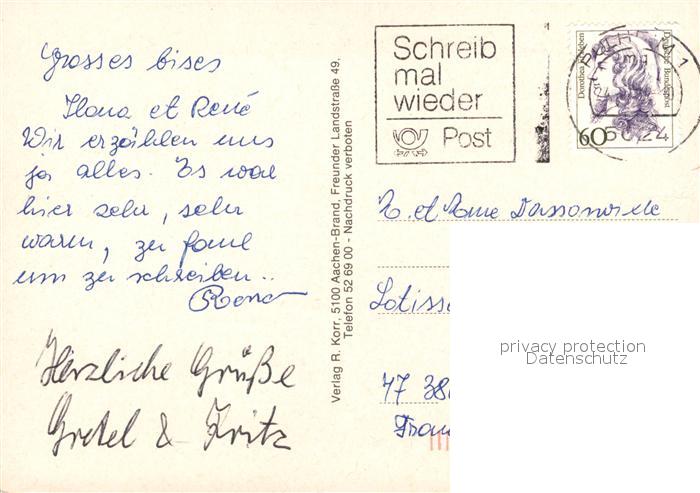 Grosses bises
Ilona et René
Wir erzählen uns
ja alles. Es war
hier sehr, sehr
warm, zu faul
um zu schreiben..
René
Herzliche Grüße
Gretel & Fritz
Verlag R. Korr, 5100 Aachen-Brand, Freunder Landstraße 49,
Telefon 52 69 00 - Nachdruck verboten
Schreib
mal
wieder
Post
Dorothea Erxleben
Deutsche Bundespost
60
M. et Mme
Lotiss
47 38
privacy protection
Datenschutz